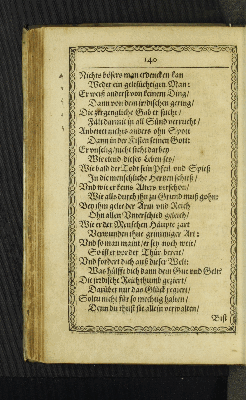 140
Nichts bösers man erdencken kan
Weder ein geltsüchtigen Man:
Er weiß anderst von keinem Ding/
Dann von dem irdischen gering/
Die zergengliche Gab er sucht/
Fält darmit in all Sünd verrucht/
Anbetet nichts anders ohn Spott
Dann in der Kisten seinen Gott:
Er unselig/nicht siehet darbey
Wie elend dieses Leben sey/
Wie bald der Todt sein Pfeil und Spieß
In die menschliche Hertzen schieß/
Und wie er keins Alters verschon/
Wie alls durch ihn zu Grund muß gohn:
Bey ihm gelte der Arm und Reich
Ohn allen Unterscheid geleich/
Wie er der Menschen Häupter zart
Verwunden thue grimmiger Art:
Und so man maint/er sey noch weit/
So ist er vor der Thür bereit/
Und fordert dich auß dieser Welt:
Was hülfft dich dann dein Gut und Gelt?
Die irrdische Reichthumb geziert/
Darüber nur das Glück regiert/
Soltu nicht für so mechtig halten/
Denn du thust sie allein verwalten/
Bist